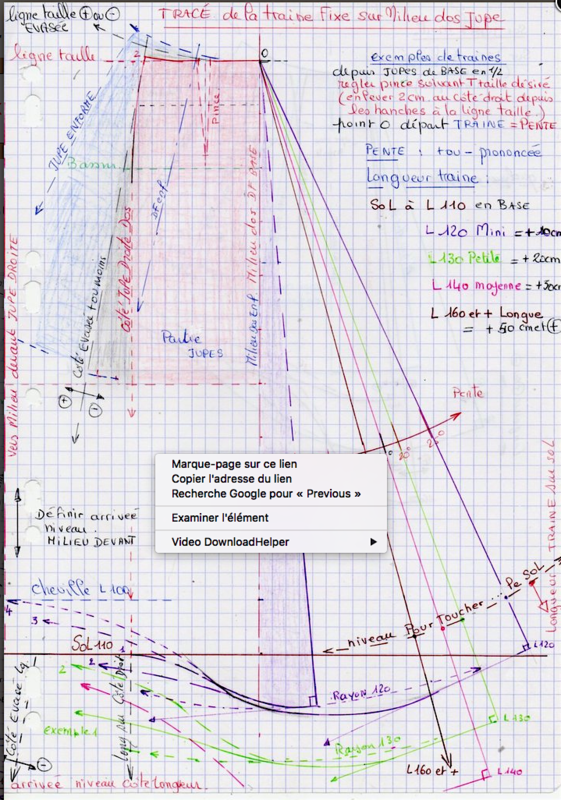 ligne taille + ou -
EVASÉE
TRACÉ de la traine Fixe sur Milieu dos Jupe
ligne taille
2
O
exemples de traines
depuis JUPES de BASE en 1/2
régler pince suivant Taille désiré
(enlever 2cm. au côté droit depuis
les hanches à la ligne taille.)
point O départ TRAINE = PENTE
PENTE : + ou - prononcée
Longueur traine :
SoL à L 110 en BASE
L 120 Mini = + 10cm
L 130 Petite = + 20cm
L 140 moyenne =
L 160 et + Longue
= + 50 cm et +
Pince
JUPE ENFORME
Bassin
Côté Jupe Droite Dos
Milieu dos DF BASE
Partie
JUPES
Côté Evasée + ou moins
+
-
Vers Milieu devant JUPE DROITE
Pente
20°
LONGUEUR TRAINE SUR SOL
Marque-page sur ce lien
Copier l'adresse du lien
Recherche Google pour « Previous »
Examiner l'élément
Video DownloadHelper
Définir arrivée
niveau.
MILIEU DEVANT
cheville L 100
4
3
SOL 110
1
2
2
niveau Pour Toucher ... Le SOL
L 120
Rayon 120
L 130
Rayon 130
exemple 1
L 160 et +
L 140
Côté Evasé
-
arrivée niveau côté longueur.